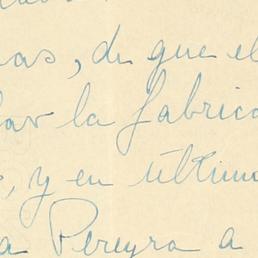 as, de que el
ar la fabric
, y en ultim
a Pereyra a